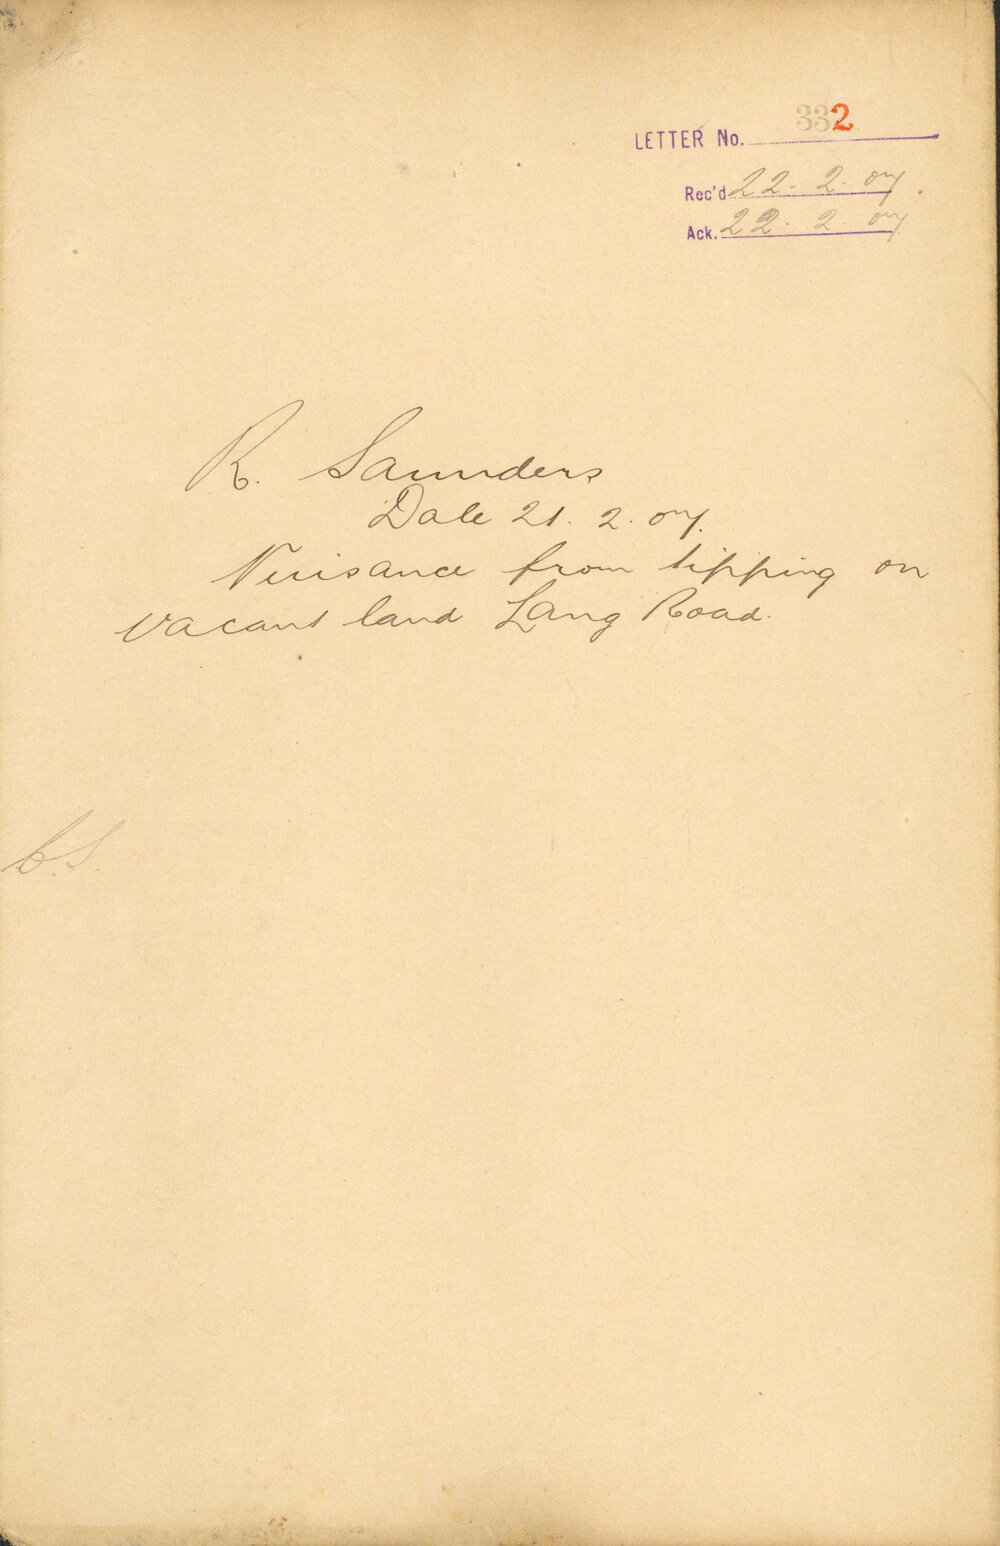 LETTER No. 332
Rec'd 22. 2. 07.
Ack. 22. 2. 07
R. Saunders
Date 21. 2. 07.
Nuisance from tipping on
vacant land Lang Road.